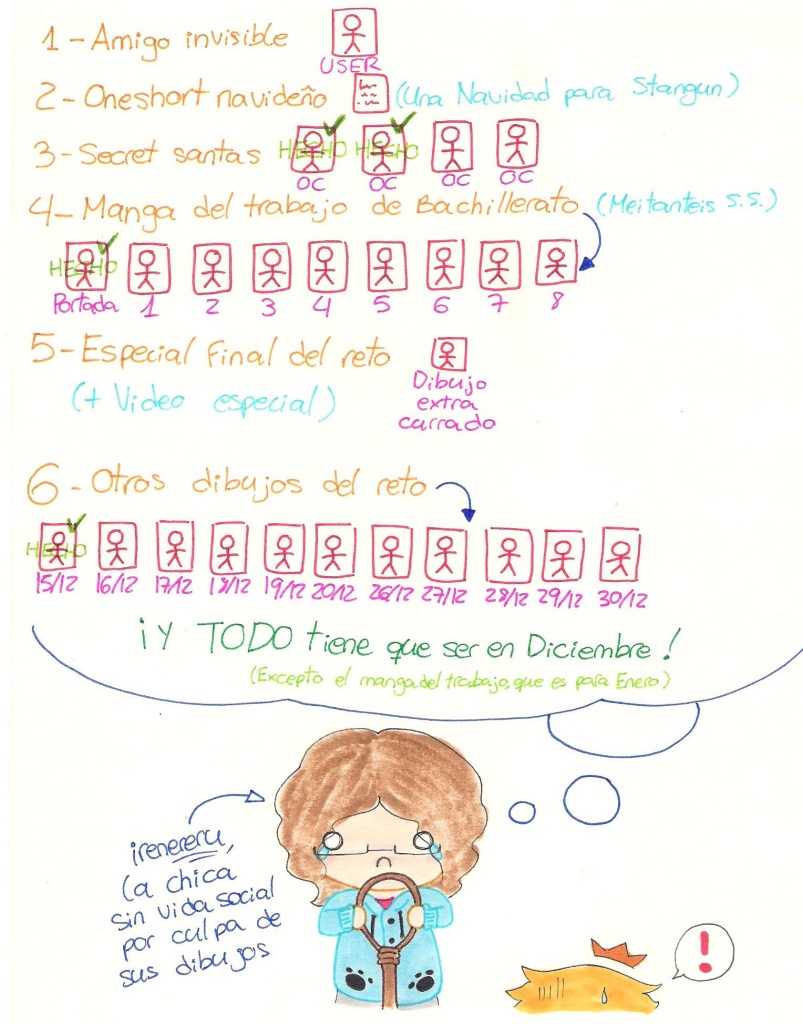 1 - Amigo invisible
USER
2 - Oneshort navideño (Una Navidad para Stangun)
3 - Secret santas HECHO HECHO
OC OC OC OC
4 - Manga del trabajo de Bachillerato (Meitanteis S.S.)
HECHO
Portada 1 2 3 4 5 6 7 8
5 - Especial final del reto
(+ Video especial)
Dibujo
extra
currado
6 - Otros dibujos del reto
HECHO
15/12 16/12 17/12 18/12 19/12 20/12 26/12 27/12 28/12 29/12 30/12
¡Y TODO tiene que ser en Diciembre!
(Excepto el manga del trabajo, que es para Enero)
irenereru,
la chica
sin vida social
por culpa de
sus dibujos
!